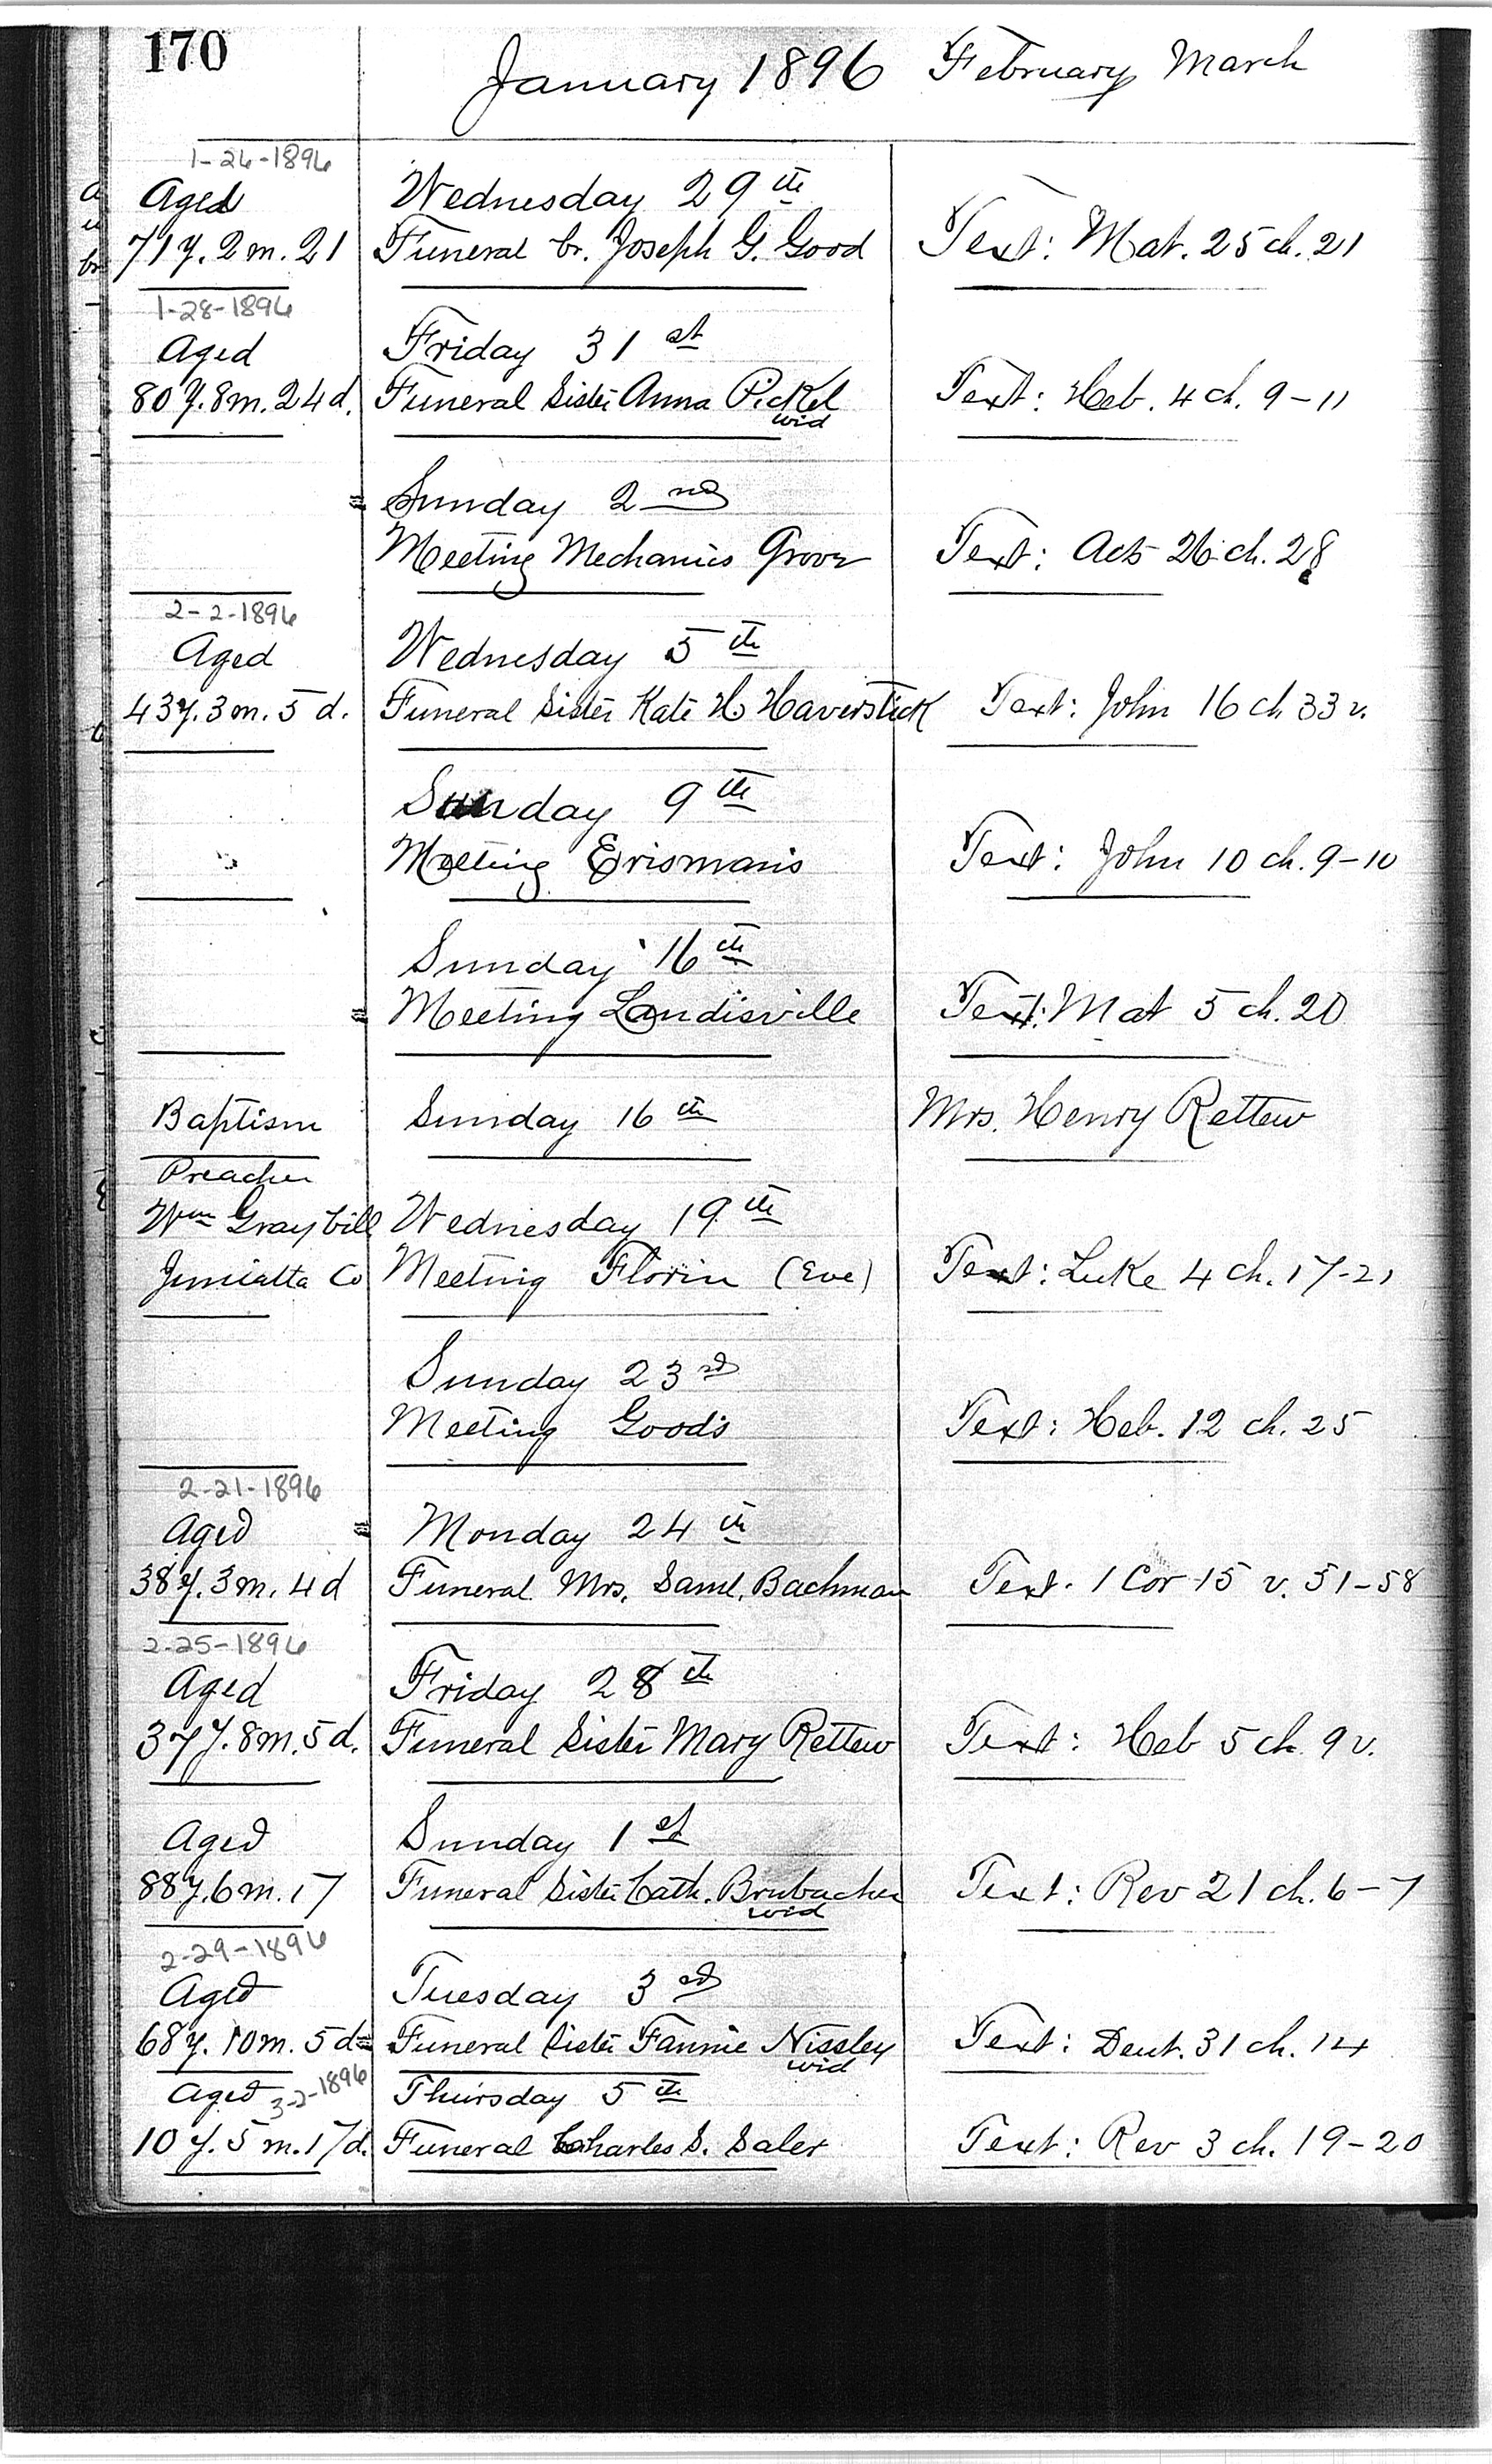 170
January 1896 February March
1-26-1896
Aged Wednesday 29th
71 y. 2 m. 21 Funeral br. Joseph G. Good Text: Mat. 25 ch. 21
1-28-1896
Aged Friday 31st
80 y. 8 m. 24 d. Funeral Sister Anna Pickel Text: Heb. 4 ch. 9-11
wid
Sunday 2nd
Meeting Mechanics Grove Text: Acts 26 ch. 28
2-2-1896
Aged Wednesday 5th
43 y. 3 m. 5 d. Funeral Sister Kate H. Haverstick Text: John 16 ch 33 v.
Sunday 9th
Meeting Erisman's Text: John 10 ch. 9-10
Sunday 16th
Meeting Landisville Text: Mat 5 ch. 20
Baptism Sunday 16th Mrs. Henry Rettew
Preacher
Wm Graybill Wednesday 19th
Juniatta Co Meeting Florin (Eve) Text: Luke 4 ch. 17-21
Sunday 23rd
Meeting Good's Text: Heb. 12 ch. 25
2-21-1896
Aged Monday 24th
38 y. 3 m. 4 d Funeral Mrs. Saml. Bachman Text. 1 Cor 15 v. 51-58
2-25-1896
Aged Friday 28th
37 y. 8 m. 5 d. Funeral Sister Mary Rettew Text: Heb 5 ch. 9 v.
Aged Sunday 1st
88 y. 6 m. 17 Funeral Sister Cath. Brubacher Text: Rev 21 ch. 6-7
wid
2-29-1896
Aged Tuesday 3rd
68 y. 10 m. 5 d Funeral Sister Fannie Nissley Text: Deut. 31 ch. 14
wid
Aged 3-2-1896 Thursday 5th
10 y. 5 m. 17 d. Funeral Charles S. Saler Text: Rev 3 ch. 19-20